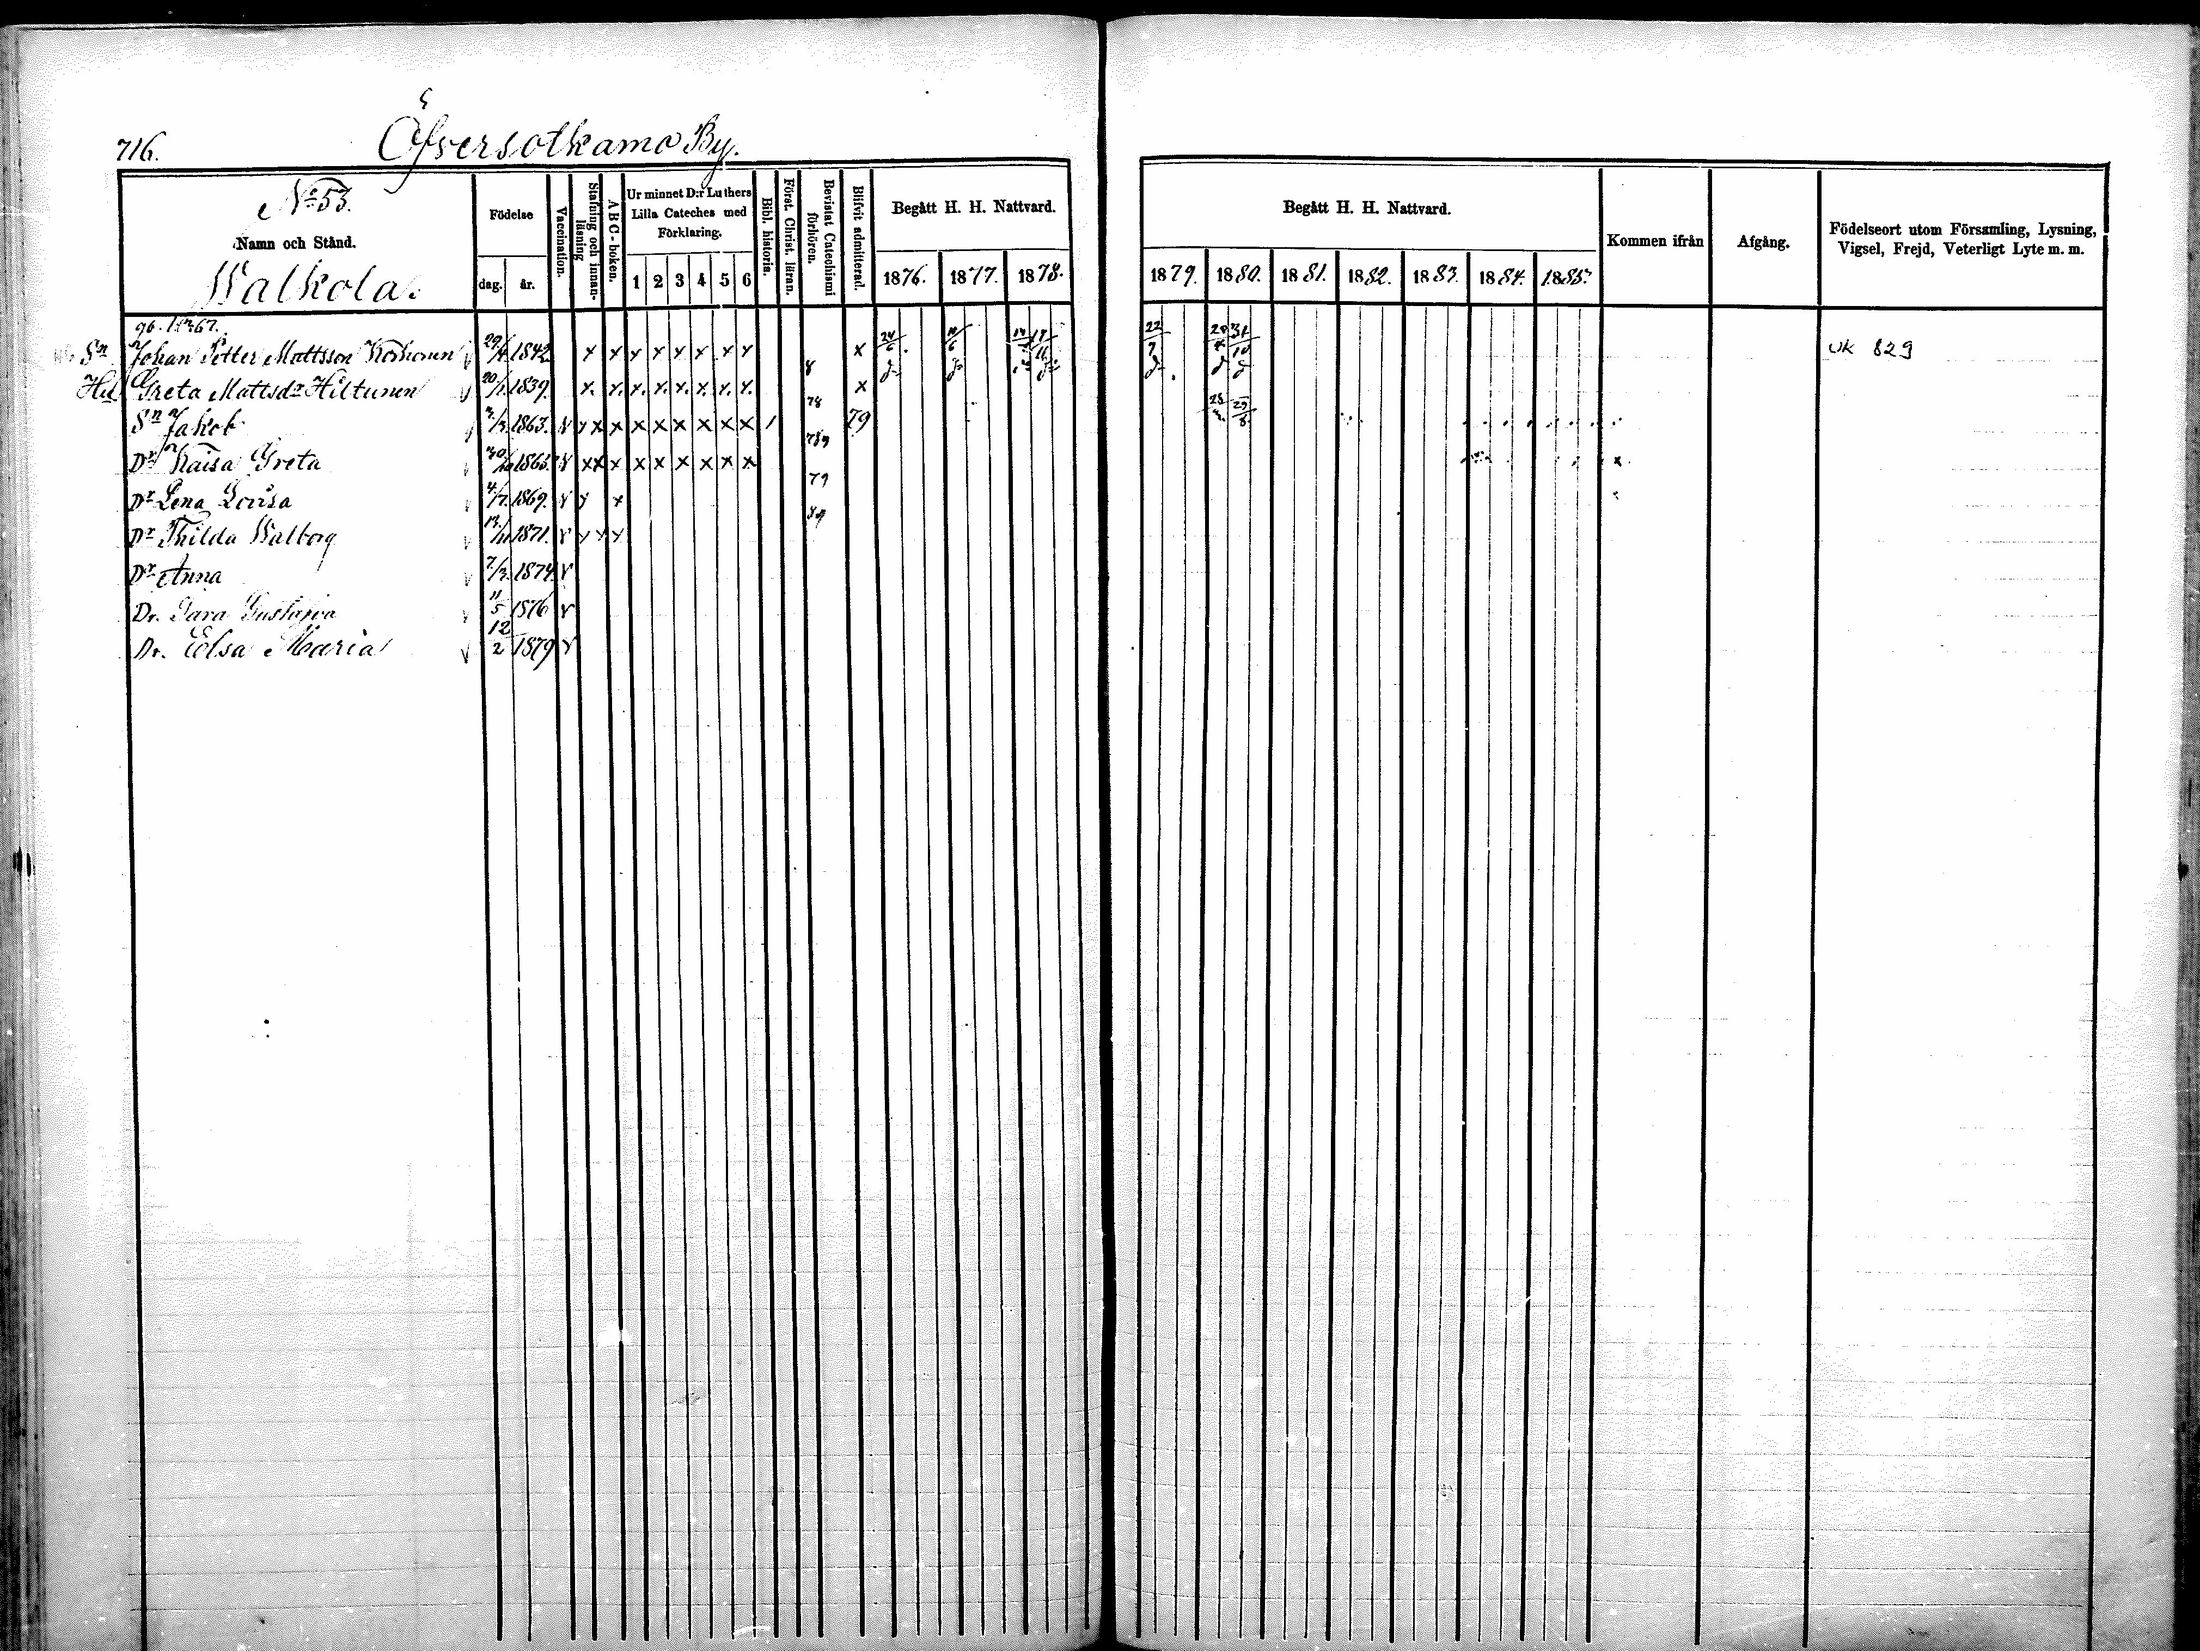 716. Öfversotkamo By.
No 53.
Namn och Stånd.
Walkola.
Födelse
dag. år.
Vaccination.
Stafning och innanläsning
A B C-boken.
Ur minnet D:r Luthers Lilla Cateches med Förklaring.
1 2 3 4 5 6
Bibl. historia.
Först. Christ. läran.
Bevistat Catechismi förhören.
Blifvit admitterad.
Begått H. H. Nattvard.
1876. 1877. 1878.
Begått H. H. Nattvard.
1879. 1880. 1881. 1882. 1883. 1884. 1885.
Kommen ifrån
Afgång.
Födelseort utom Församling, Lysning, Vigsel, Frejd, Veterligt Lyte m. m.
Sn Johan Petter Mattsson Korhonen 29/4 1842 x x x x x x x x x 24/6 22/7 31/10 UK 829
Hu Greta Mattsdr Hiltunen 20/1 1839. x. x. x. x. x. x. x. x. 8 x
Sn Jakob 7/3 1863. v x x x x x x x x x 1 78 79 29/8
Dr Kaisa Greta 1865 v x x x x x x x x x 789
Dr Lena Lovisa 4/7 1869. v x x 79
Dr Thilda Walborg 13/11 1871. v x x x
Dr Anna 7/3 1874 v
Dr. Sara Gustava 11/5 1876 v
Dr. Elsa Maria 12/2 1879 v